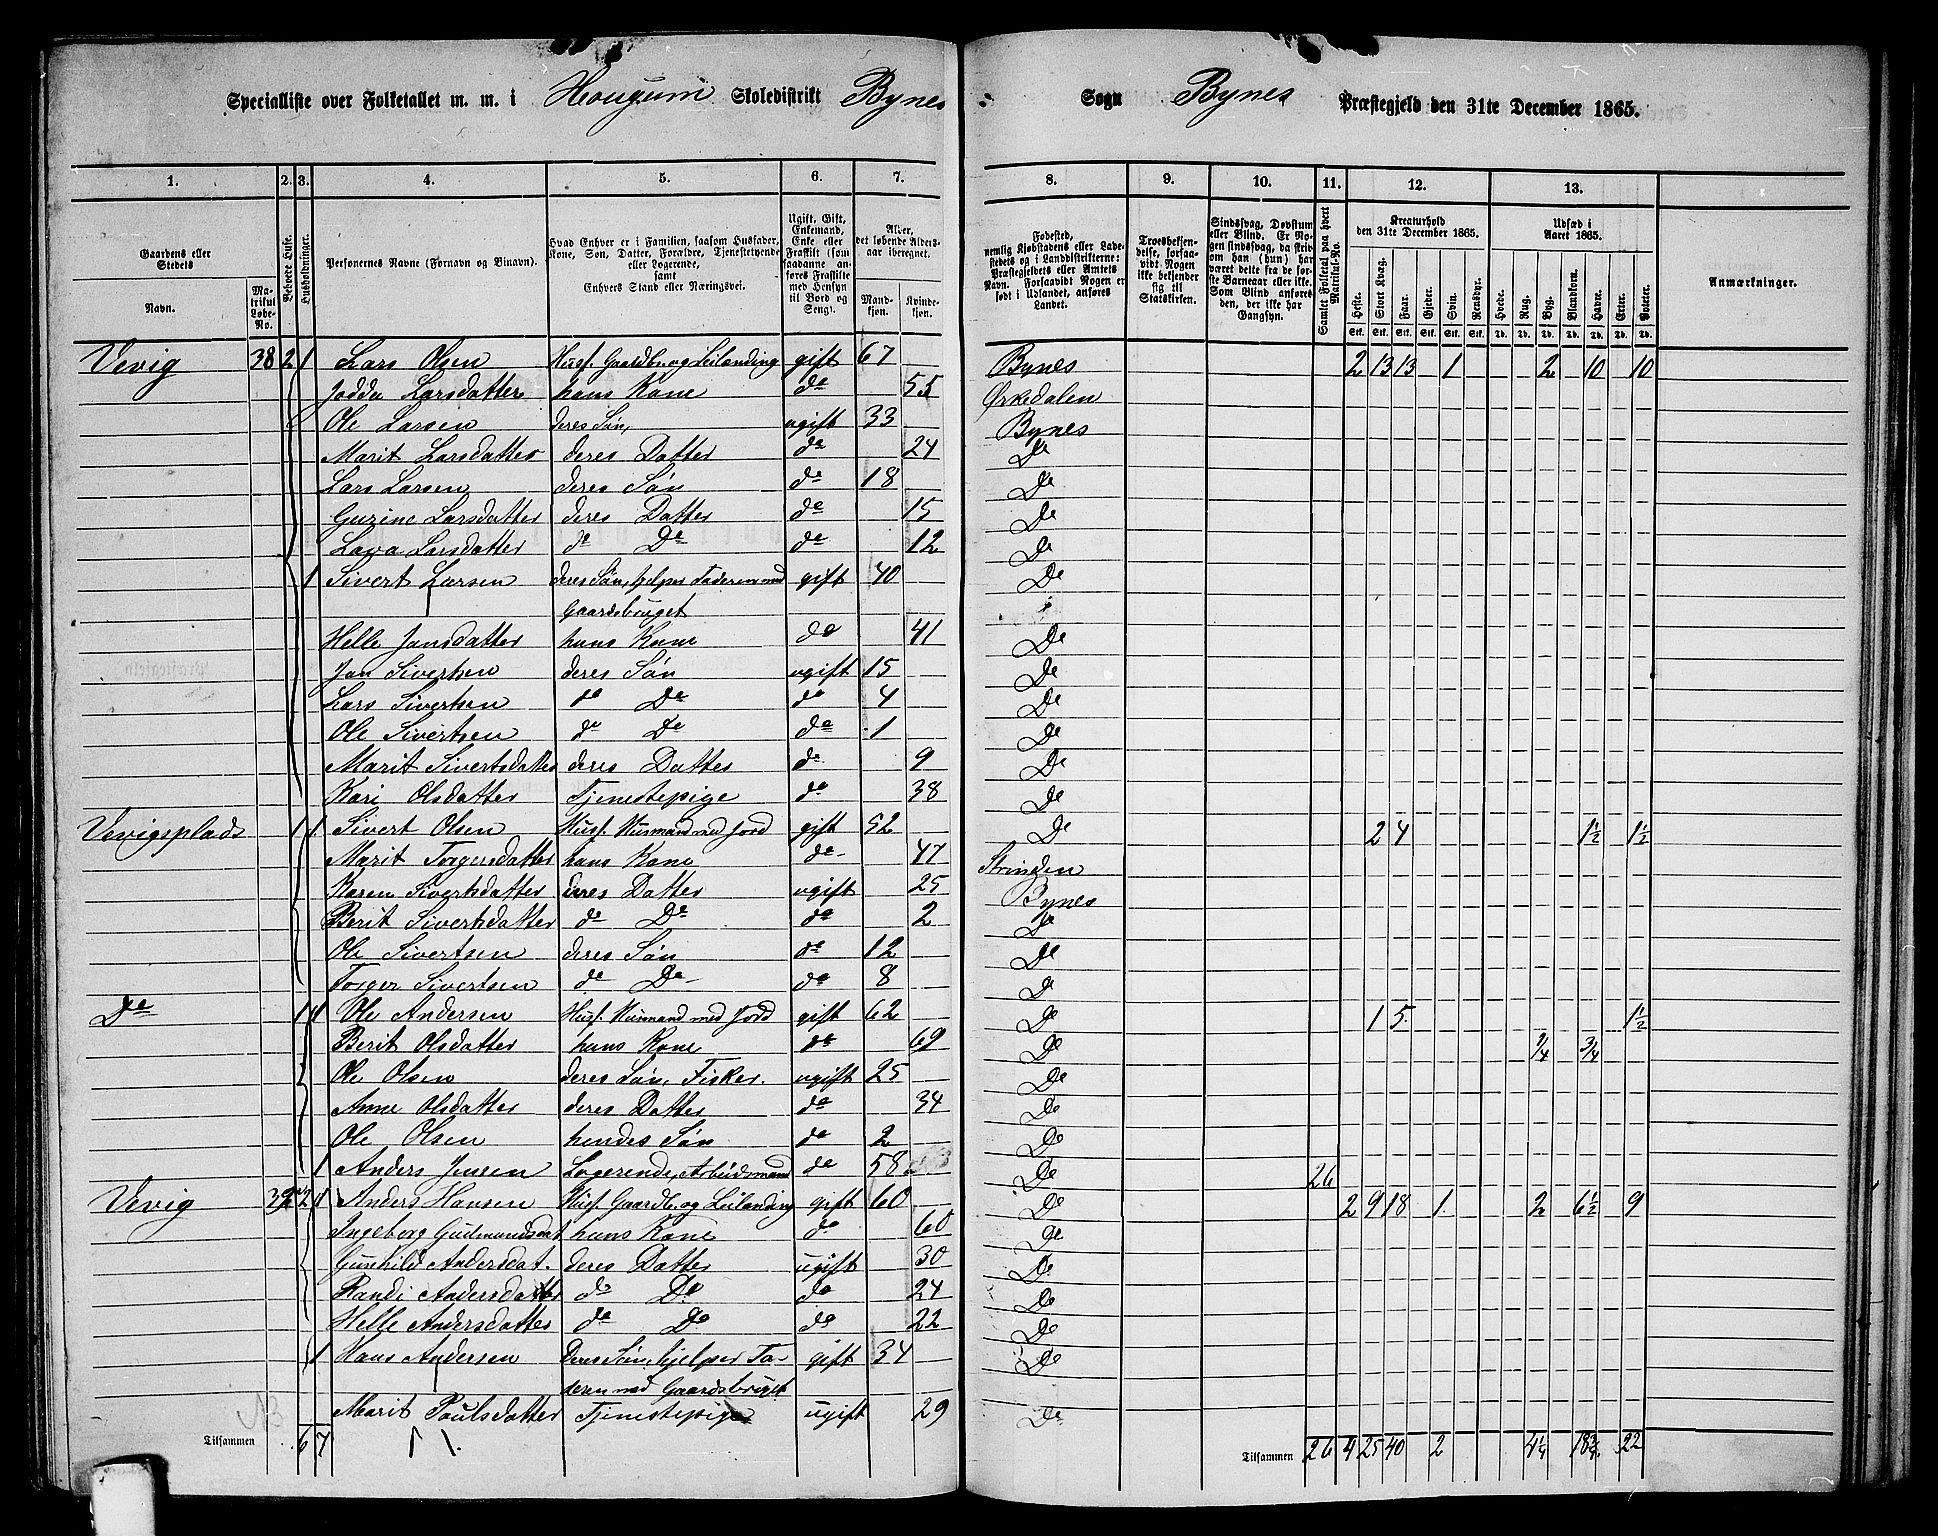 Specialliste over Folketallet m. m. i Hougum Skoledistrikt Bynes Sogn Bynes Præstegjeld den 31te December 1865.
1. 2. 3. 4. 5. 6. 7. 8. 9. 10. 11. 12. 13.
Gaardens eller Stedets
Navn.
Matrikul Løbe-No.
Beboede Huse.
Husholdninger.
Personernes Navne (Fornavn og Binavn).
Hvad Enhver er i Familien, saasom Husfader, Kone, Søn, Datter, Forældre, Tjenestetyende eller Logerende, samt Enhvers Stand eller Næringsvei.
Ugift, Gift, Enkemand, Enke eller Fraskilt (som saadanne anføres Fraskilte med Hensyn til Bord og Seng).
Alder, det løbende Alders-aar iberegnet.
Mandkjøn. Kvindekjøn.
Fødested, nemlig Kjøbstadens eller Ladestedets og i Landdistrikterne: Præstegjeldets eller Amtets Navn. Forsaavidt Nogen er født i Udlandet, anføres Landet.
Troesbekjendelse, forsaavidt Nogen ikke bekjender sig til Statskirken.
Sindssvag, Døvstum eller Blind. Er Nogen sindssvag, da skrives om han (hun) har været dette fra de første Barneaar eller ikke. Som Blind anføres den, der ikke har Gangsyn.
Samlet Folketal paa hvert Matrikul-No.
Kreaturhold den 31te December 1865.
Heste. Stort Kvæg. Faar. Gjeder. Svin. Rensdyr.
Udsæd i Aaret 1865.
Hvede. Rug. Byg. Blandkorn. Havre. Erter. Poteter.
Anmærkninger.
Vevig 38 2 1 Lars Olsen Husf. Gaardbr. og Leilænding gift 67 Bynes 2 13 13 1 2 10 10
Lars­datter hans Kone do 55 Ørkedalen
Ole Larsen deres Søn, ugift 33 Bynes
Marit Larsdatter deres Datter do 24 Do
Lars Larsen deres Søn do 18 Do
Gurine Larsdatter deres Datter do 15 Do
Larsdatter do Do do 12 Do
1 Sivert Larsen deres Søn, hjelper Faderen med gift 40 Do
Gaardsbruget
Helle Jansdatter hans Kone do 41 Do
Jan Sivertsen deres Søn ugift 15 Do
Lars Sivertsen do Do do 4 Do
Ole Sivertsen do Do do 1 Do
Marit Sivertsdatter deres Datter do 9 Do
Kari Olsdatter Tjenestepige do 38 Do
Vevigsplads 1 1 Sivert Olsen Husf. Husmand med Jord gift 52 Do 2 4 1½ 1½
Marit Torgersdatter hans Kone do 47 Strinden
Karen Sivertsdatter deres Datter ugift 25 Bynes
Berit Sivertsdatter do Do do 2 Do
Ole Sivertsen deres Søn do 12 Do
Torger Sivertsen do Do do 8 Do
Do 1 1 Ole Andersen Husf. Husmand med Jord gift 62 Do 1 5 1½
Berit Olsdatter hans Kone do 69 Do ¼ ¾
Ole Olsen deres Søn, Fisker. ugift 25 Do
Anne Olsdatter deres Datter do 34 Do
Ole Olsen hendes Søn do 2 Do
1 Anders Jensen Logerende, Arbeidsmand do 58 Do 26
Vevig 39 2 1 Anders Hansen Husf. Gaardb. og Leilænding gift 60 Do 2 9 18 1 2 6½ 9
Ingeborg Gudmundsdat hans Kone do 60 Do
Gunhild Andersdat. deres Datter ugift 30 Do
Randi Andersdatter do Do do 24 Do
Helle Andersdatter do Do do 22 Do
1 Hans Andersen Deres Søn, hjelper Fa- gift 34 Do
deren med Gaardsbruget
Marit Paulsdatter Tjenestepige ugift 29 Do
Tilsammen 6 7 Tilsammen 26 4 25 40 2 4¼ 18¾ 22